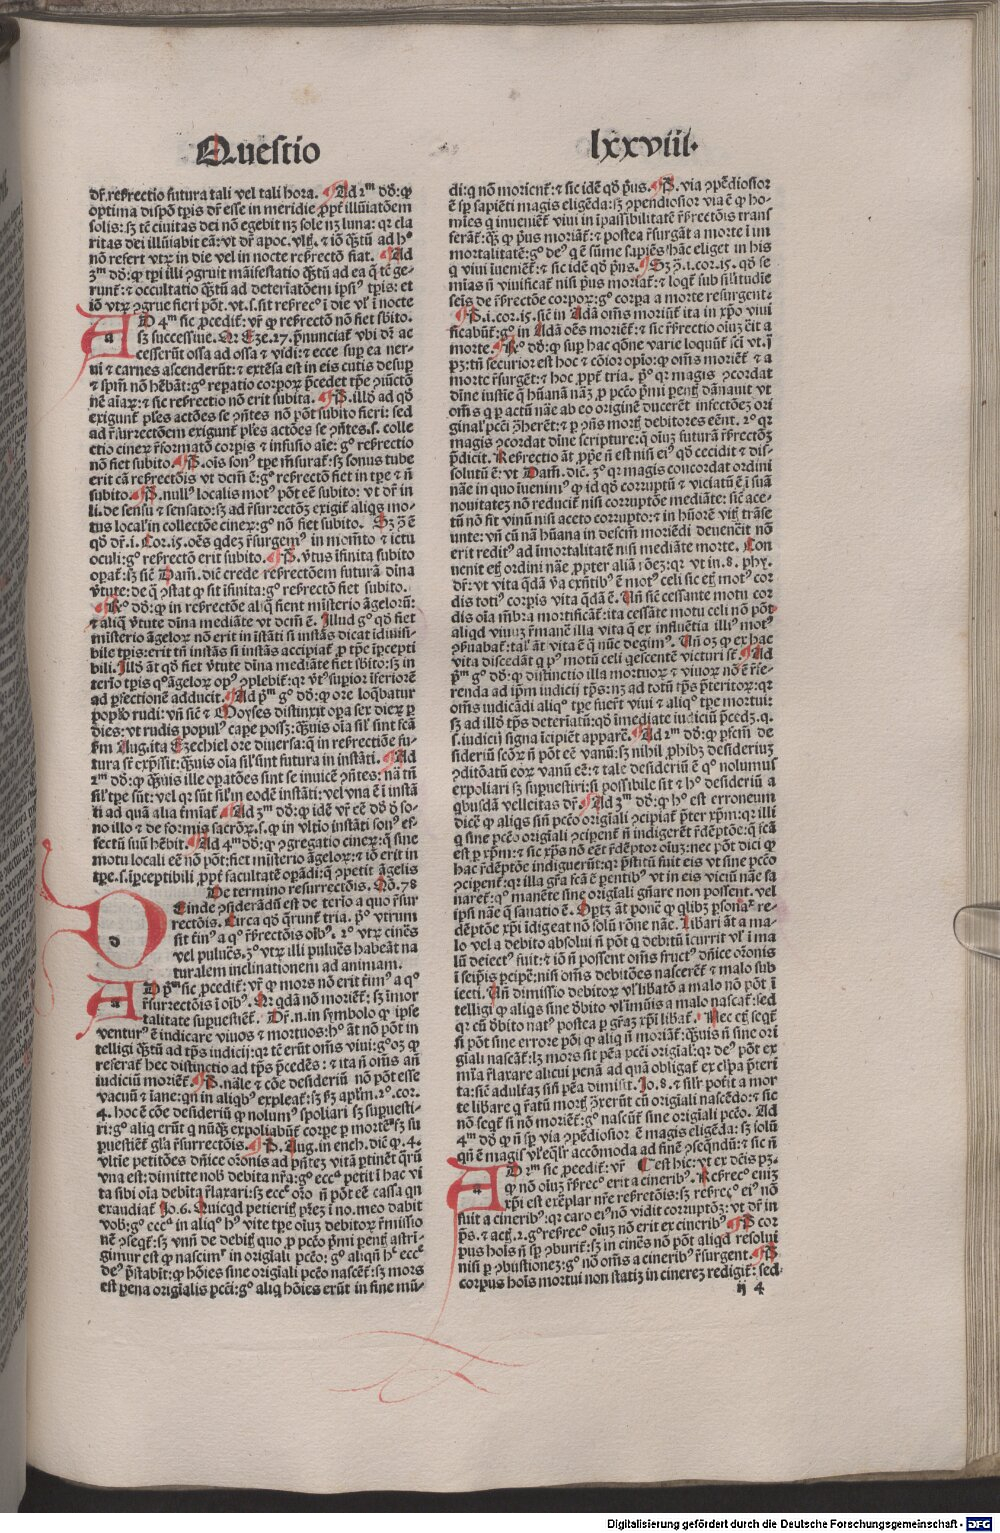 Questio lxxviii.
dr̄ resrrectio futura tali vel tali hora. Ad 2m dd: ꝙ
optima dispō tp̄is dr̄ esse in meridie ꝓpt̄ illūiatōem
solis: sꝫ tē ciuitas dei nō egebit nꝫ sole nꝫ luna: qꝛ cla
ritas dei illūiabit eā: vt dr̄ apoc. vltꝭ. ⁊ iō ꝙstū ad hº
nō refert vtꝝ in die vel in nocte resrrectō fiat. Ad
3m dd: ꝙ tp̄i illi ꝯgruit māifestatio ꝙstū ad ea q̄ tē ge-
runt̄: ⁊ occultatio ꝙstū ad deteriatōem ip̄siꝰ tp̄is: et
iō vtꝝ ꝯgrue fieri pōt. vt. s. sit resrrecº ī die vl̓ ī nocte
AD 4m sic ꝓcedit̄: vr̄ ꝙ resrrectō nō fiet sbito.
sꝫ successiue. Qꝛ Eze. 27. p̄nunciat̄ vbi dr̄ ac
cesserūt ossa ad ossa ⁊ vidi: ⁊ ecce suꝑ ea ner-
ui ⁊ carnes ascenderūt: ⁊ extēsa est in eis cutis desuꝑ
⁊ sp̄m nō hēbāt: gº repatio corpoꝝ p̄cedet tp̄e ꝯiūctō
nē aīaꝝ: ⁊ sic resrrectio nō erit subita. P. illd̓ ad qd̓
exigunt̄ pl̓es actōes se ꝯn̄tes nō pōt subito fieri: sed
ad r̄surrectōem exigunt̄ pl̓es actōes se ꝯn̄tes. s. colle
ctio cineꝝ r̄formatō corp̄is ⁊ infusio aīe: gº resrrectio
nō fiet subito. P. oīs sonꝰ tp̄e mēsurat̄: sꝫ sonus tube
erit cā resrrectōis vt dcm̄ ē: gº resrrectō fiet in tp̄e ⁊ n̄
subito. P. nullꝰ localis motꝰ pōt eē subito: vt dr̄ in
li. de sensu ⁊ sensato: sꝫ ad r̄surrectōꝫ exigit̄ aliqs mo-
tus local̓ in collectōe cineꝝ: gº nō fiet subito. Sꝫ ꝯ̄ ē
qd̓ dr̄. i. Cor. 15. oēs qdeꝫ r̄surgemꝰ in momēto ⁊ ictu
oculi: gº resrrectō erit subito. P. v̓tus īfinita subito
opat̄: sꝫ sic̄ Dam̄. dic̄ crede resrrectōem futurā dīna
v̓tute: de q̄ ꝯstat ꝙ sit īfinita: gº resrrectō fiet subito.
Rº dd: ꝙ in resrrectōe aliq̄ fient mīsterio āgeloꝝ:
⁊ aliq̄ v̓tute dīna mediāte vt dcm̄ ē. Illud gº qd̓ fiet
mīsterio āgeloꝝ nō erit in īstāti si instās dicat īdiuisi-
bile tp̄is: erit tn̄ instās si instās accipiat̄ ꝓ tp̄e īꝑcepti
bili. Illd̓ āt qd̓ fiet v̓tute dīna mediāte fiet sbito: sꝫ in
teriō tp̄is qº āgeloꝝ opꝰ ꝯplebit̄: qꝛ v̓tꝰ supior īferiorē
ad ꝑfectionē adducit. Ad p̄m gº dd: ꝙ ore loq̄batur
ꝓpl̓o rudi: vn̄ sic̄ ⁊ Moyses distinxit opa sex dieꝝ ꝑ
dies: vt rudis populꝰ cape posꝫ: ꝙuis oīa sil̓ sint fcā
s̓m Aug. ita Ezechiel ore diuersa: q̄ in resrrectiōe fu-
tura sr̄ exp̄ssit: ꝙuis oīa sil̓ sint futura in instāti. Ad
2m dd: ꝙ ꝙuis ille opatōes sint se inuicē ꝯn̄tes: nā tn̄
sil̓ tp̄e sūt: vel qꝛ sūt sil̓ in eodē instāti: vel vna ē ī instā
ti ad quā alia tīmiat̄. Ad 3m dd: ꝙ idē vr̄ eē dd̓ d̓ so-
no illo ⁊ de formis sacroꝝ. s. ꝙ in vltio instāti sonꝰ ef-
fectū suū hēbit. Ad 4m dd: ꝙ ꝯgregatio cineꝝ: q̄ sine
motu locali eē nō pōt: fiet mīsterio āgeloꝝ: ⁊ iō erit in
tp̄e. s. īꝑceptibili ꝓpt̄ facultatē opādi: q̄ ꝯpetit āgelis
De termino resurrectōis. Qō. 78
Deinde ꝯsiderādū est de terīo a quo r̄sur
rectōis. Circa qd̓ q̄runt̄ tria. pº vtrum
sit tīnꝰ a qº r̄srrectōis oībꝰ. 2º vtꝝ cinēs
vel puluēs. 3º vtꝝ illi puluēs habeāt na
turalem inclinationem ad animam.
AD pm̄ sic ꝓcedit̄: vr̄ ꝙ mors nō erit tīnꝰ a qº
r̄surrectōis ī oībꝰ. Qꝛ qdā nō moriēt̄: sꝫ īmor
talitate supuestiēt̄. Dr̄. n. in symbolo ꝙ ipse
venturꝰ ē iudicare viuos ⁊ mortuos: hº āt nō pōt in
telligi ꝙstū ad tp̄s iudicij: qꝛ tē erūt om̄s viui: gº oꝫ ꝙ
referat̄ hec distinctio ad tp̄s p̄cedēs: ⁊ ita n̄ om̄s an̄
iudiciū moriēt̄. P. nāle ⁊ cōe desideriū nō pōt esse
vacuū ⁊ iane: qn̄ in aliqbꝰ expleat̄: sꝫ s̓ꝫ apl̓m. 2º. cor.
4. hoc ē cōe desideriū ꝙ nolumꝰ spoliari sꝫ supuesti-
ri: gº aliq erūt q nūqꝫ expoliabūt̄ corpe ꝑ mortē sꝫ su
puestiēt̄ gl̓a r̄surrectōis. P. Aug. in ench. dic̄ ꝙ. 4.
vltīe petitōes dn̄ice orōnis ad p̄n̄teꝫ vitā ꝑtinēt q̄rū
vna est: dimitte nob̓ debita nr̄a: gº eccª petit ī hac vi
ta sibi oīa debita r̄laxari: sꝫ eccᵉ orō n̄ pōt eē cassa qn
exaudiat̄ Jo. 6. Quicqd petieritꝭ pr̄eꝫ ī no. meo dabit
vob̓: gº eccª in aliqº hꝰ vite tp̄e oīuꝫ debitoꝝ r̄missio
nē ꝯseqt̄: sꝫ vnū de debitꝭ quo ꝓ pcc̄o p̄mi pent̄ꝭ astri-
gimur est ꝙ nascimꝰ in origīali pcc̄o: gº aliqn̄ hº eccᵉ
deꝰ p̄stabit: ꝙ hōies sine origīali pcc̄o nascēt̄: sꝫ mors
est pena origīalis pcc̄i: gº aliq hōies erūt in fine mū-
di: q nō morient̄: ⁊ sic idē qd̓ pus. P. via ꝯpēdiosior
ē sp̄ sapiēti magis eligēda: sꝫ ꝯpendiosior via ē ꝙ ho-
mīes q inueniēt̄ viui in īpassibilitatē r̄srrectōis trans
ferāt̄: ꝙ pus moriāt̄: ⁊ postea r̄surgāt a morte ī im
mortalitatē: gº deꝰ q ē sūme sapiēs hāc eliget in his
q viui īueniēt̄: ⁊ sic idē qd̓ pus. Sꝫ ꝯ̄. i. cor. 15. qd̓ se
mīas n̄ viuificat̄ nisi pus moriat̄: ⁊ loqt̄ sub sil̓itudīe
seīs de r̄srrectōe corpoꝝ: gº corpa a morte resurgent̄
P. i. cor. 15. sic̄ in Adā om̄s moriūt̄ ita in xp̄o viui
ficabūt̄: gº in Adā oēs moriēt̄: ⁊ sic r̄srrectio oīuꝫ erit a
morte. Rº dd: ꝙ suꝑ hac qōne varie loquūt̄ sci vt. j̄
pꝫ: tn̄ securior est hoc ⁊ cōior opio: ꝙ om̄s moriēt̄ ⁊ a
morte r̄surgēt: ⁊ hoc ꝓpt̄ tria. pº qꝛ magis ꝯcordat
dīne iustīe q̄ hūanā nāꝫ ꝓ pcc̄o p̄mi pentꝭ dānauit vt
om̄s q ꝑ actū nāe ab eo originē ducerēt infectōeꝫ ori
ginalꝭ pcc̄i ꝯ̄herēt: ⁊ ꝑ ꝯn̄s mortꝭ debitores eēnt. 2º qꝛ
magis ꝯcordat dīne scripture: q̄ oīuꝫ futurā r̄srrectōꝫ
p̄dicit. Resrrectio āt ꝓpe n̄ est nisi eiꝰ qd̓ cecidit ⁊ dis-
solutū ē: vt Dam̄. dic̄. 3º qꝛ magis concordat ordini
nāe in quo īuenimꝰ ꝙ id qd̓ corruptū ⁊ viciatū ē ī suā
nouitateꝫ nō reducit̄ nisi corruptōe mediāte: sic̄ ace-
tū nō fit vinū nisi aceto corrupto: ⁊ in hūorē vitꝭ trāse
unte: vn̄ cū nā hūana in desctm̄ moriēdi deuenerit nō
erit reditꝰ ad imortalitatē nisi mediāte morte. Con
uenit etꝭ ordini nāe ꝓpter aliā rōeꝫ: qꝛ vt in. 8. phy.
dr̄: vt vita qdā v̓a exn̄tibꝰ ē motꝰ celi sic etꝭ motꝰ cor
dis totiꝰ corpis vita qdā ē. Vn̄ sic̄ cessante motu cor
dis oīa mēbra mortificāt̄: ita cessāte motu celi nō pōt
aliqd viuuꝫ r̄manē illa vita q̄ ex influētia illiꝰ motꝰ
ꝯ̄seruabat̄: tal̓ āt vita ē q̄ nūc degimꝰ. Vn̄ oꝫ ꝙ ex hac
vita discedāt q pꝰ motū celi qescentē victuri st̄. Ad
pm̄ gº dd: ꝙ distinctio illa mortuoꝝ ⁊ viuoꝝ nō ē r̄fe-
renda ad ip̄m iudicij tp̄s: nꝫ ad totū tp̄s p̄teritoꝝ: qꝛ
om̄s iudicādi aliqº tp̄e fuer̄t viui ⁊ aliqº tp̄e mortui:
sꝫ ad illd̓ tp̄s deteriatū: qd̓ īmediate iudiciū p̄cedꝫ. q.
s. iudicij signa īcipiēt apparē. Ad 2m dd: ꝙ pfcm̄ de
sideriū scōꝝ n̄ pōt eē vanū: sꝫ nihil ꝓhibꝫ desideriuꝫ
ꝯditōatū eoꝝ vanū eē: ⁊ tale desideriū ē qº nolumus
expoliari sꝫ supuestiri: si possibile sit ⁊ hº desideriū a
qbusdā velleitas dr̄. Ad 3m dd: ꝙ hº est erroneum
dicē ꝙ aliqs sin̄ pcc̄o origīali ꝯcipiat̄ p̄ter xp̄m: qꝛ illi
q sine pcc̄o origīali ꝯcipent̄ n̄ indigerēt r̄dēptōe: q̄ fcā
est ꝑ xp̄m: ⁊ sic xp̄s nō eēt r̄dēptor oīuꝫ: nec pōt dici ꝙ
hac r̄dēptōe indiguerūt: qꝛ p̄stitū fuit eis vt sine pcc̄o
ꝯcipent̄: qꝛ illa gr̄a fcā ē ꝑentibꝰ vt in eis viciū nāe sa
naret̄: qº manēte sine origīali gn̄are non possent. vel
ipsi nāe q̄ sanatio ē. Optꝫ āt ponē ꝙ qlibꝫ ꝑsonar̄ re-
dēptōe xp̄i īdigeat nō solū rōne nāe. Libari āt a ma-
lo vel a debito absolui n̄ pōt q debitū īcurrit vl̓ ī ma
lū deiectꝰ fuit: ⁊ iō n̄ possent om̄s fructꝰ dn̄ice orōnis
ī seipis ꝑcipe: nisi om̄s debitōes nascerēt̄ ⁊ malo sub
iecti. Vn̄ dimissio debitoꝝ vl̓ libatō a malo nō pōt ī
telligi ꝙ aliqs sine d̓bito vl̓ īmūis a malo nascat̄: sed
qꝛ cū d̓bito natꝰ postea ꝑ gr̄aꝫ xp̄i libat̄. Nec etꝭ seqt̄
si pōt sine errore pōi ꝙ aliq n̄ moriāt̄: ꝙuis n̄ sine ori
gīali nascāt̄: lꝫ mors sit pēa pcc̄i origīal̓: qꝛ deꝰ pōt ex
mīa r̄laxare alicui penā ad quā obligat̄ ex culpa p̄teri
ta: sic̄ adulterāꝫ sin̄ pēa dimisit. Jo. 8. ⁊ silr̄ potit a mor
te libare q r̄atū mortꝭ ꝯ̄xerūt cū origīali nascēdo: ⁊ sic
nō seqt̄ si nō moriēt̄: gº nascūt̄ sine origīali pcc̄o. Ad
4m dd̓ ꝙ n̄ sp̄ via ꝯpēdiosior ē magis eligēda: sꝫ solū
qn̄ ē magꝭ vl̓ eql̓r accōmoda ad finē ꝯseqndū: ⁊ sic n̄
AD 2m sic ꝓcedit̄: vr̄ est hic: vt ex dcis pꝫ.
ꝙ nō oīuꝫ r̄srrecº erit a cineribꝰ. Resrrecº enīꝫ
xp̄i est exēplar nr̄e resrretōis: sꝫ resrrecº eiꝰ nō
fuit a cineribꝰ: qꝛ caro eiꝰ nō vidit corruptōꝫ: vt dr̄ in
ps̄. ⁊ actꝭ. 2. gº resrrecº oīuꝫ nō erit ex cineribꝰ P cor
pus hoīs n̄ sp̄ ꝯburit̄: sꝫ in cinēs nō pōt aliqd resolui
nisi ꝑ ꝯbustionez: gº nō om̄s a cineribꝰ r̄surgent. P
corpus hoīs mortui non statiꝫ in cinerez redigit̄: sed
ij 4
Digitalisierung gefördert durch die Deutsche Forschungsgemeinschaft - DFG